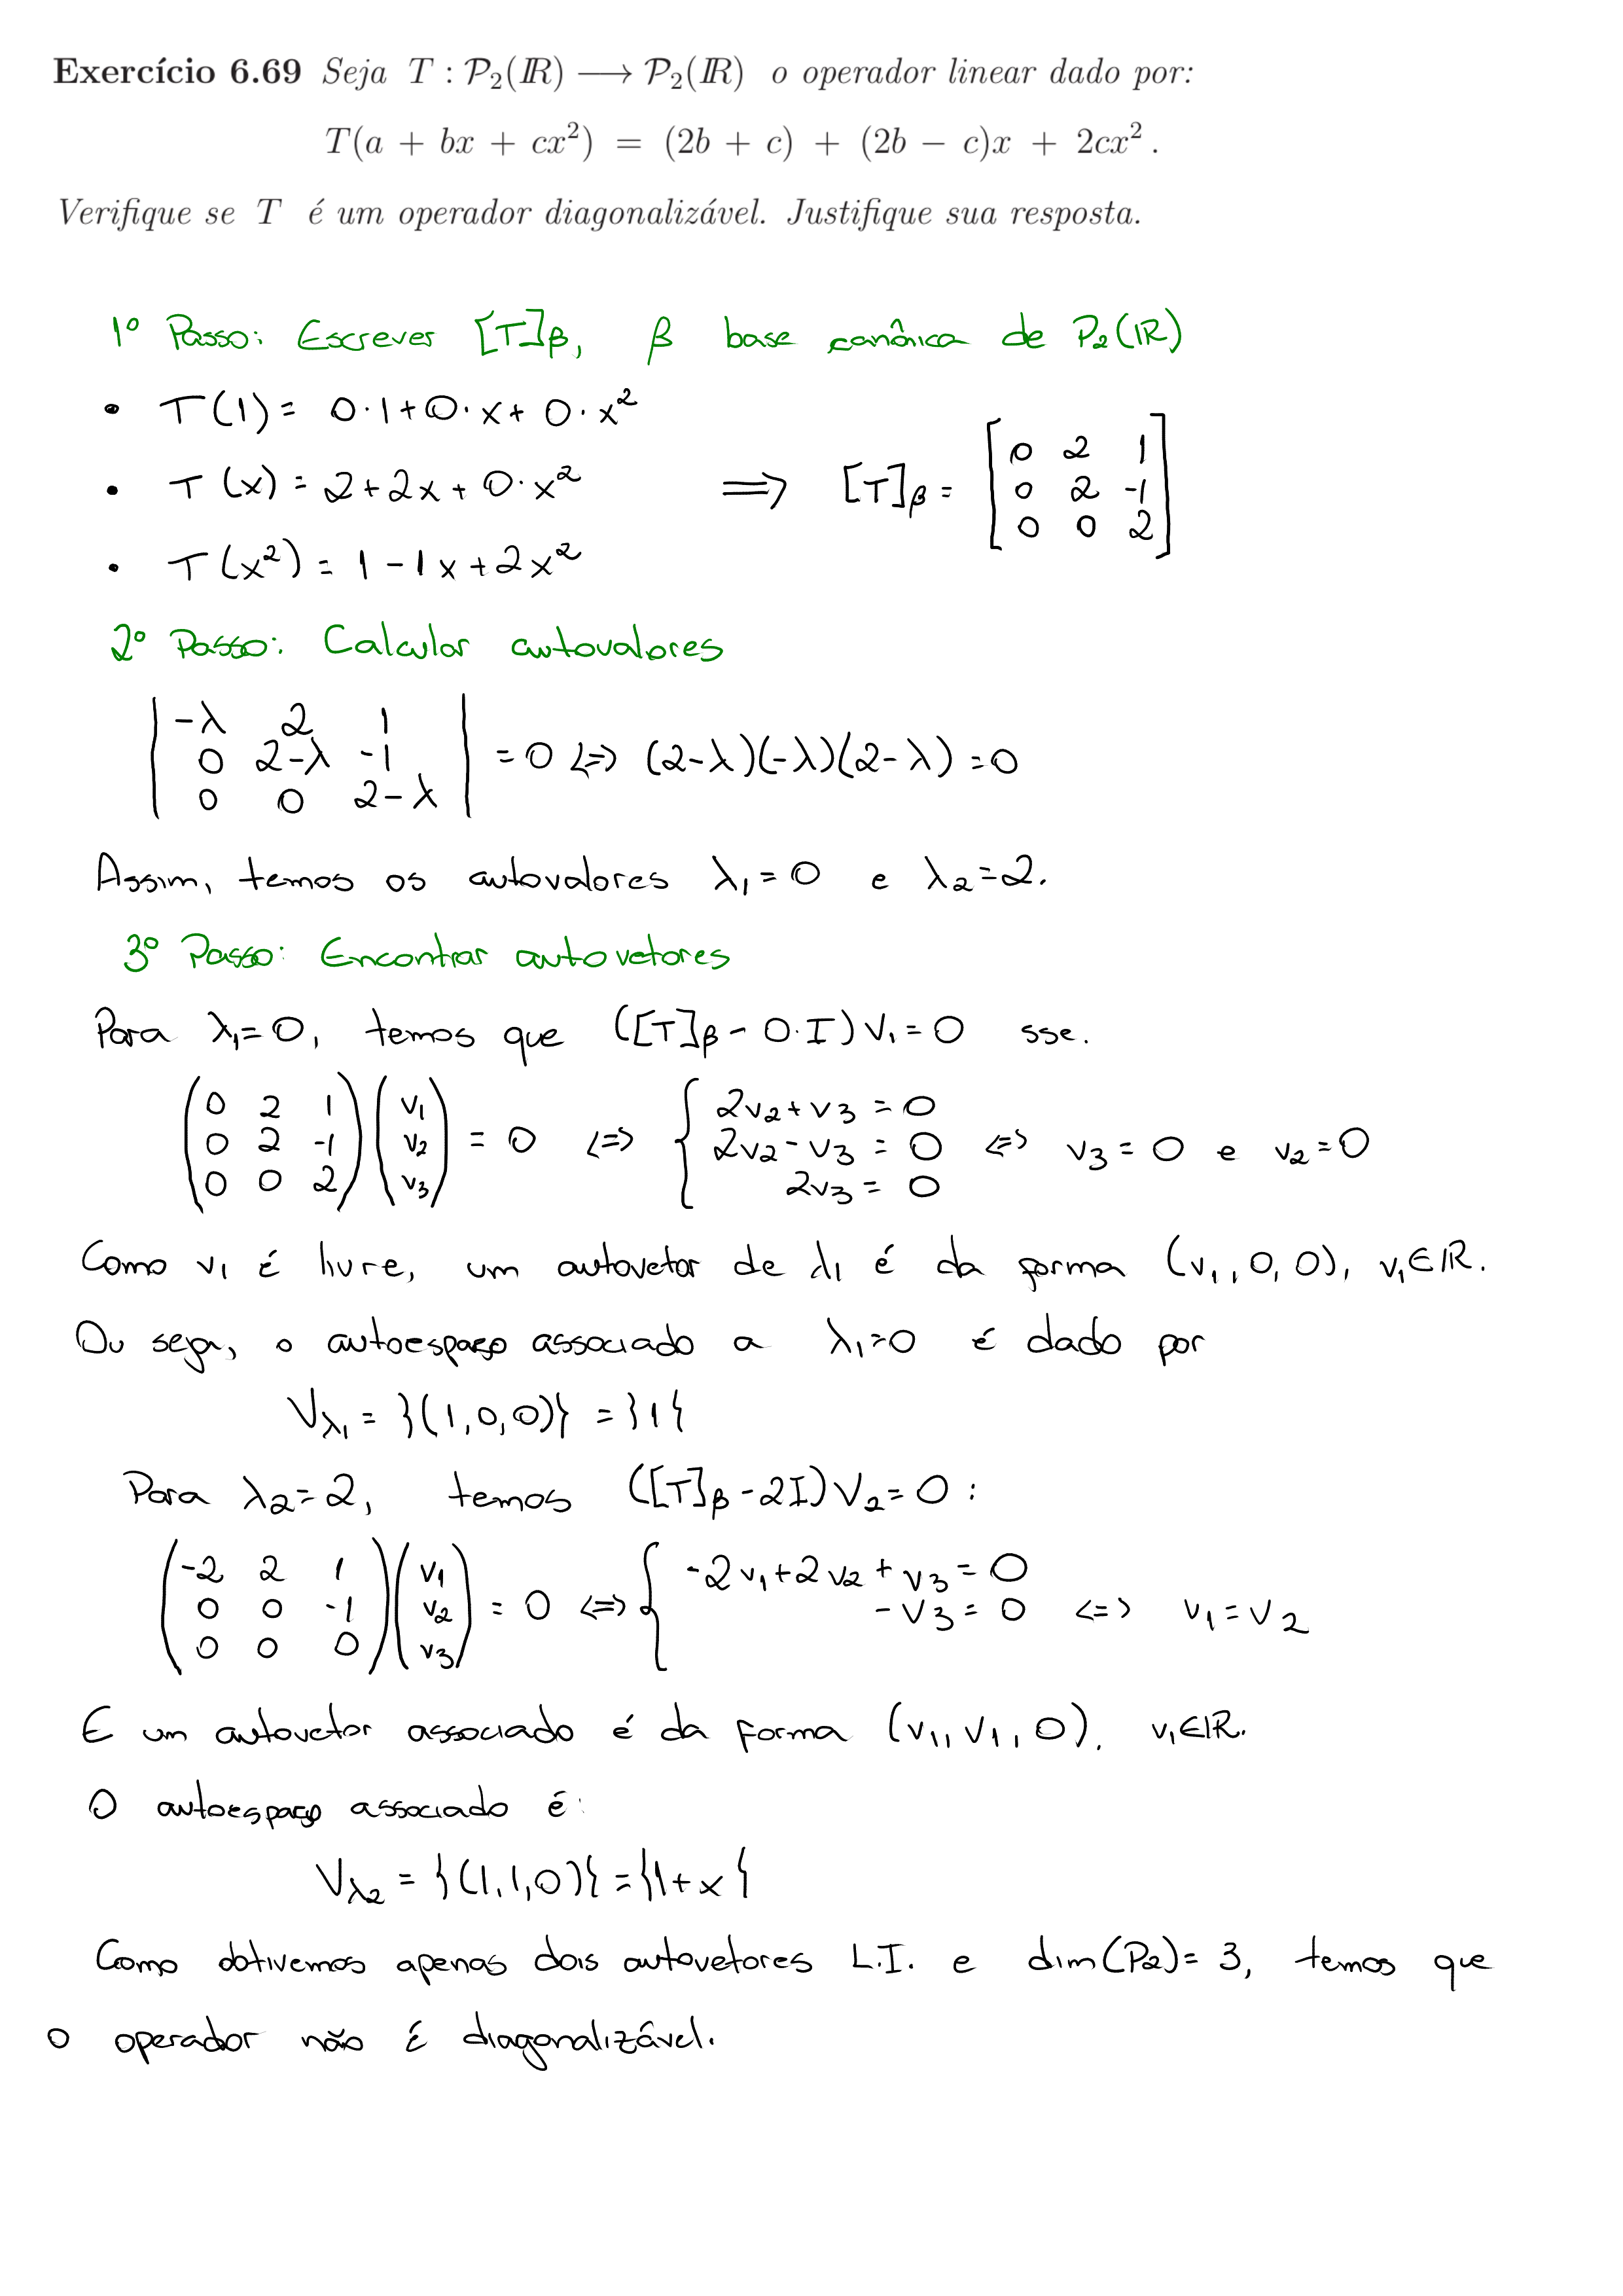 Exercício 6.69 Seja T : P₂(IR) ⟶ P₂(IR) o operador linear dado por:
T(a + bx + cx²) = (2b + c) + (2b − c)x + 2cx² .
Verifique se T é um operador diagonalizável. Justifique sua resposta.
1º Passo: Escrever [T]β, β base canônica de P₂(IR)
• T(1) = 0·1+0·x+0·x²
• T(x) = 2+2x+0·x² ⟹ [T]β = [0 2 1; 0 2 -1; 0 0 2]
• T(x²) = 1-1x+2x²
2º Passo: Calcular autovalores
|-λ 2 1; 0 2-λ -1; 0 0 2-λ| = 0 <=> (2-λ)(-λ)(2-λ) = 0
Assim, temos os autovalores λ₁=0 e λ₂=2.
3º Passo: Encontrar autovetores
Para λ₁=0, temos que ([T]β - 0·I)V₁=0 sse.
(0 2 1; 0 2 -1; 0 0 2)(v₁; v₂; v₃) = 0 <=> { 2v₂+v₃=0; 2v₂-v₃=0; 2v₃=0 <=> v₃=0 e v₂=0
Como v₁ é livre, um autovetor de λ₁ é da forma (v₁,0,0), v₁∈IR.
Ou seja, o autoespaço associado a λ₁=0 é dado por
Vλ₁ = }(1,0,0)} = }1{
Para λ₂=2, temos ([T]β-2I)V₂=0:
(-2 2 1; 0 0 -1; 0 0 0)(v₁; v₂; v₃) = 0 <=> { -2v₁+2v₂+v₃=0; -v₃=0 <=> v₁=v₂
E um autovetor associado é da forma (v₁,v₁,0), v₁∈IR.
O autoespaço associado é:
Vλ₂ = }(1,1,0){ = {1+x{
Como obtivemos apenas dois autovetores L.I. e dim(P₂)=3, temos que
o operador não é diagonalizável.